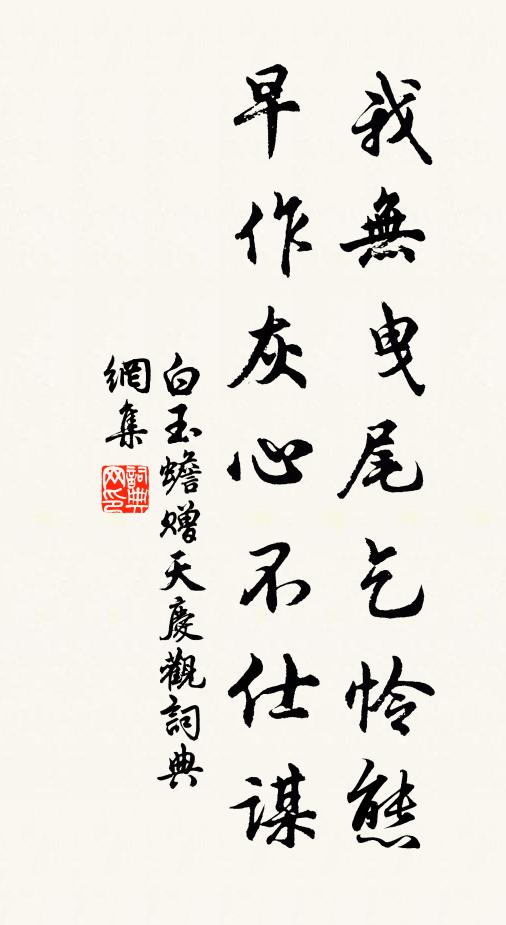 我無曳尾乞怜態
早作灰心不仕謀
白玉蟾贈天慶觀詞典
網集
詞典
网印